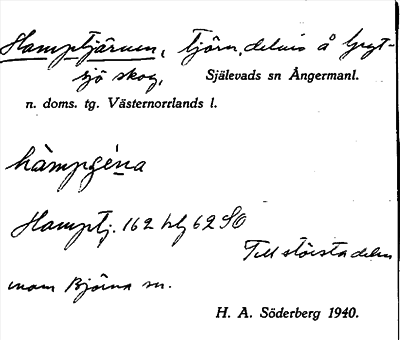 Hamptjärnen, tjärn, delvis å Gryt-
sjö skog, Själevads sn Ångermanl.
n. doms. tg. Västernorrlands l.
hàmpǥéna
Hamptj. 162 blj 62 SO
Till största delen
inom Björna sn.
H. A. Söderberg 1940.